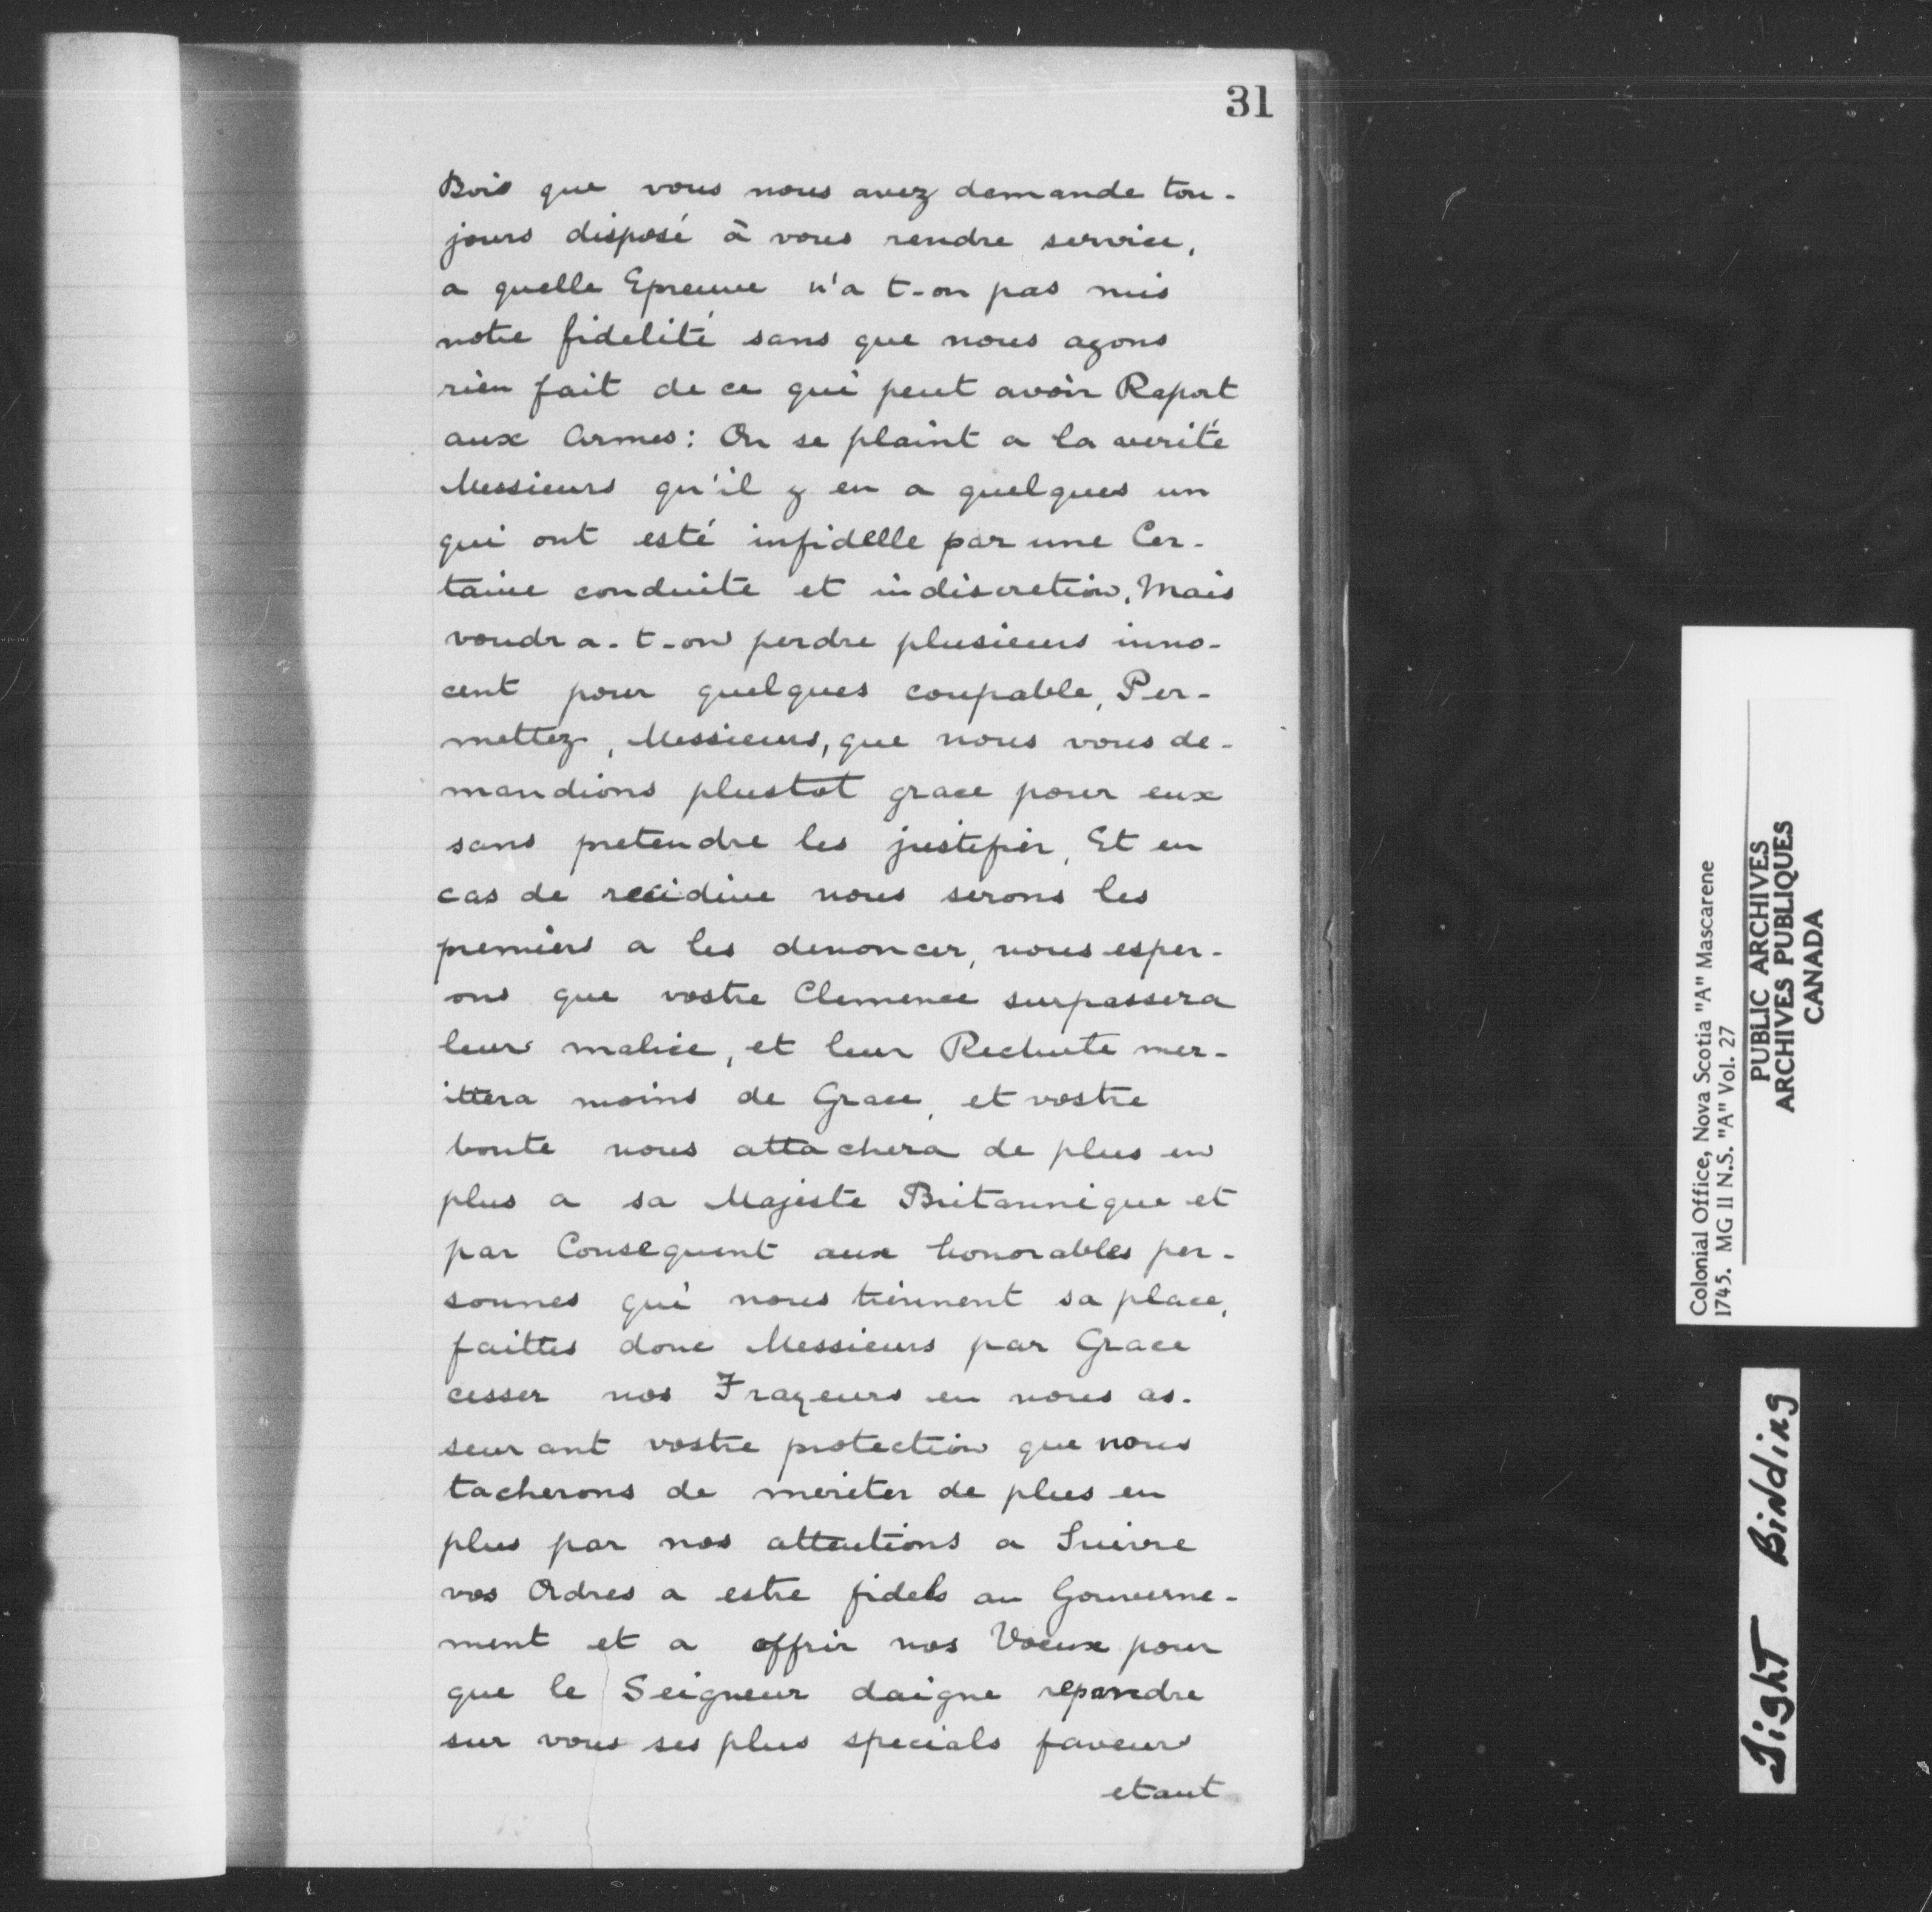 31
Bois que vous nous avez demande tou-
jours disposé à vous rendre service,
a quelle Epreuve n'a t-on pas mis
notre fidelité sans que nous ayons
rien fait de ce qui peut avoir Raport
aux Armes: On se plaint a la verité
Messieurs qu'il y en a quelques un
qui ont esté infidelle par une Cer-
taine conduite et indiscretion, Mais
voudra-t-on perdre plusieurs inno-
cent pour quelques coupable, Per-
mettez, Messieurs, que nous vous de-
mandions plustot grace pour eux
sans pretendre les justifier, Et en
cas de recidive nous serons les
premiers a les denoncer, nous esper-
ons que vostre Clemence surpassera
leur malice, et leur Rechute mer-
ittera moins de Grace, et vostre
bonte nous attachera de plus en
plus a sa Majeste Britannique et
par Consequent aux honorables per-
sonnes qui nous tiennent sa place,
faittes donc Messieurs par Grace
cesser nos Frayeurs en nous as-
seurant vostre protection que nous
tacherons de meriter de plus en
plus par nos attentions a Suivre
vos Ordres a estre fidels au Gouverne-
ment et a offrir nos Voeux pour
que le Seigneur daigne repandre
sur vous ses plus specials faveurs
etant
Colonial Office, Nova Scotia "A" Mascarene
1745. MG II N.S. "A" Vol. 27
PUBLIC ARCHIVES
ARCHIVES PUBLIQUES
CANADA
Tight Binding